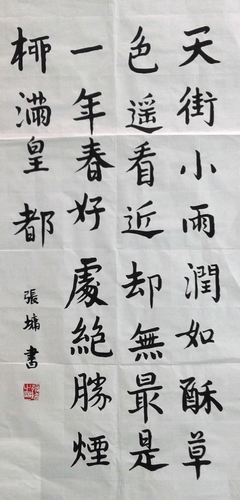 天街小雨潤如酥草
色遥看近却無最是
一年春好處絕勝煙
柳滿皇都
張墉書